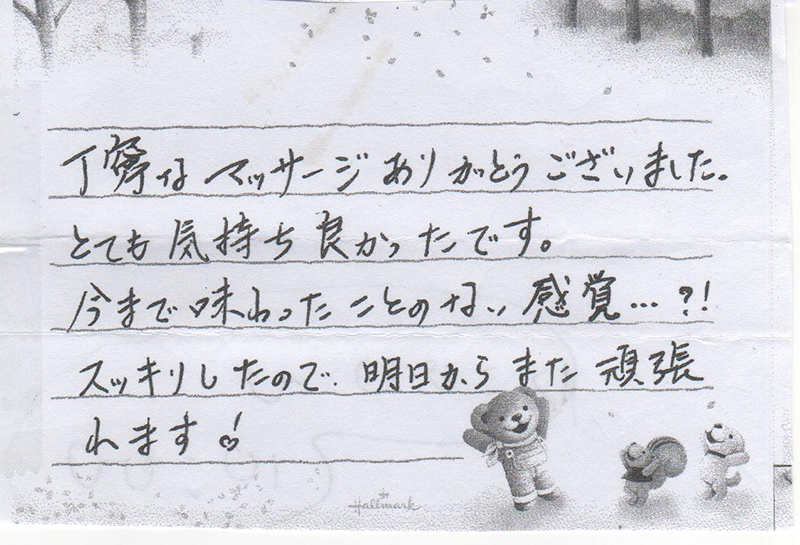 丁寧な マッサージ ありがとうございました。
とても 気持ち 良かったです。
今まで味わったことのない感覚…?!
スッキリしたので、明日からまた 頑張
れます!
Hallmark